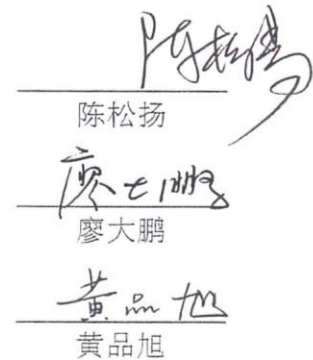 陈松扬
陈松扬
廖大鹏
廖大鹏
黄品旭
黄品旭